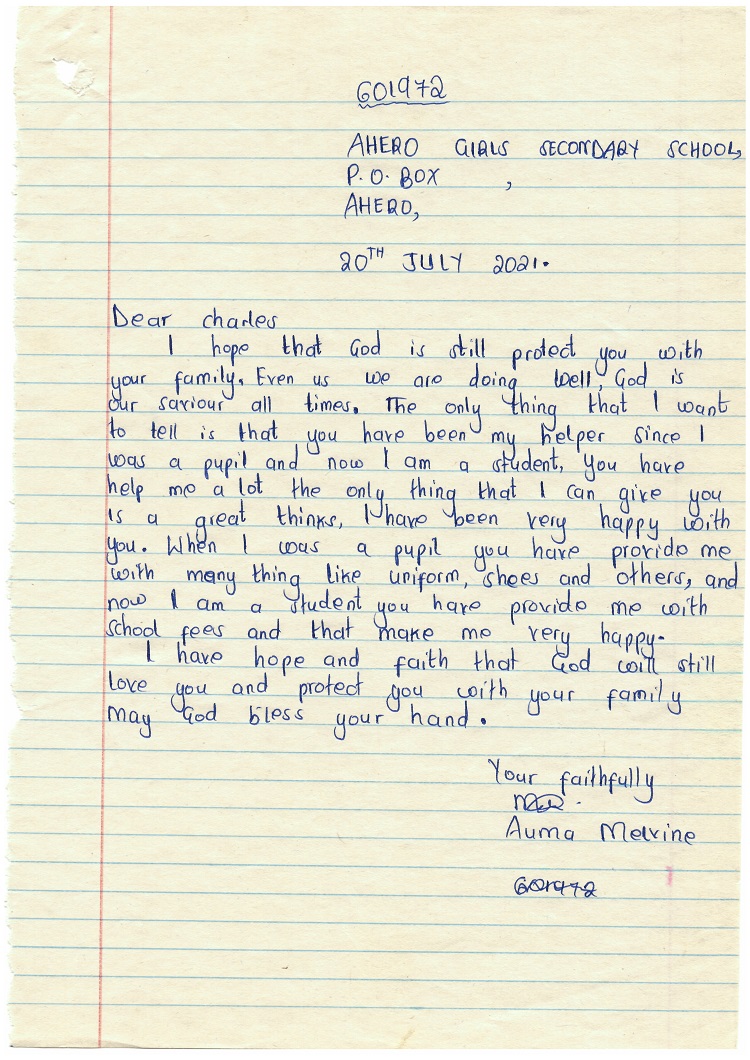 G01972
AHERO GIRLS SECONDARY SCHOOL,
P.O. BOX ,
AHERO,
20TH JULY 2021.
Dear charles
I hope that God is still protect you with
your family. Even us we are doing well, God is
our saviour all times. The only thing that I want
to tell is that you have been my helper since I
was a pupil and now I am a student, you have
help me a lot the only thing that I can give you
is a great thinks, I have been very happy with
you. When I was a pupil you have provide me
with many thing like uniform, shoes and others, and
now I am a student you have provide me with
school fees and that make me very happy.
I have hope and faith that God will still
love you and protect you with your family
may God bless your hand.
Your faithfully
Auma Melvine
G01972